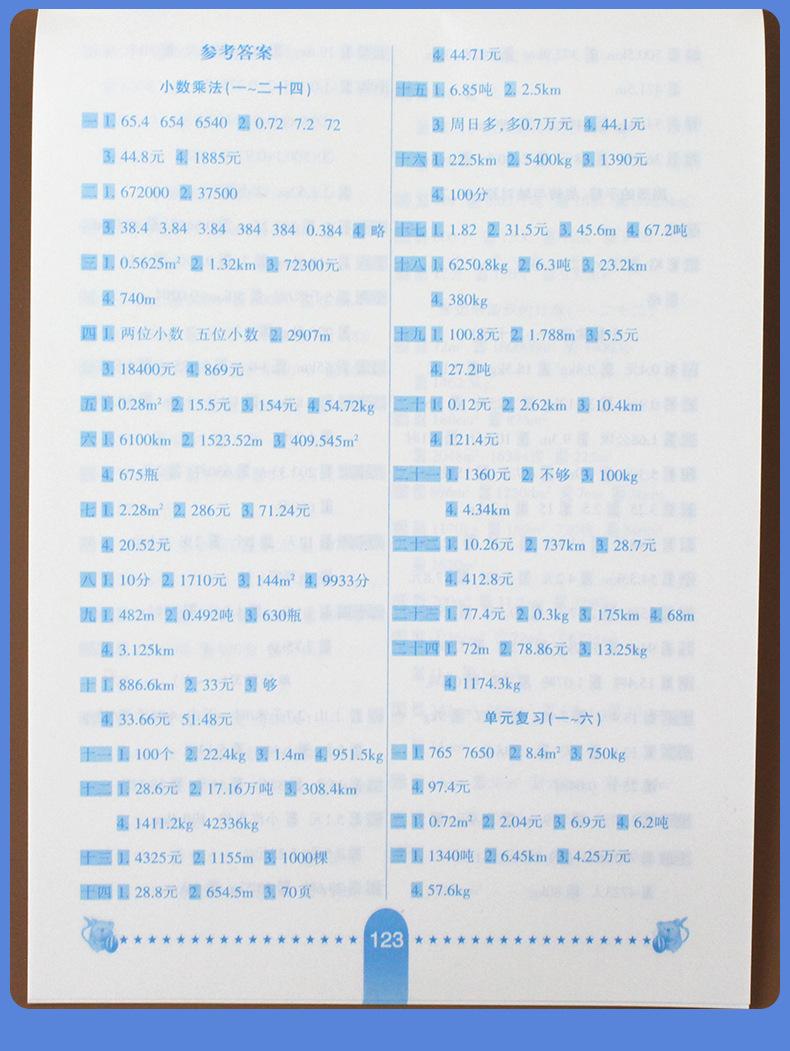 参考答案
小数乘法(一~二十四)
一 1. 65.4 654 6540 2. 0.72 7.2 72
3. 44.8元 4. 1885元
二 1. 672000 2. 37500
3. 38.4 3.84 3.84 384 384 0.384 4. 略
三 1. 0.5625m² 2. 1.32km 3. 72300元
4. 740m
四 1. 两位小数 五位小数 2. 2907m
3. 18400元 4. 869元
五 1. 0.28m² 2. 15.5元 3. 154元 4. 54.72kg
六 1. 6100km 2. 1523.52m 3. 409.545m²
4. 675瓶
七 1. 2.28m² 2. 286元 3. 71.24元
4. 20.52元
八 1. 10分 2. 1710元 3. 144m² 4. 9933分
九 1. 482m 2. 0.492吨 3. 630瓶
4. 3.125km
十 1. 886.6km 2. 33元 3. 够
4. 33.66元 51.48元
十一 1. 100个 2. 22.4kg 3. 1.4m 4. 951.5kg
十二 1. 28.6元 2. 17.16万吨 3. 308.4km
4. 1411.2kg 42336kg
十三 1. 4325元 2. 1155m 3. 1000棵
十四 1. 28.8元 2. 654.5m 3. 70页
4. 44.71元
十五 1. 6.85吨 2. 2.5km
3. 周日多,多0.7万元 4. 44.1元
十六 1. 22.5km 2. 5400kg 3. 1390元
4. 100分
十七 1. 1.82 2. 31.5元 3. 45.6m 4. 67.2吨
十八 1. 6250.8kg 2. 6.3吨 3. 23.2km
4. 380kg
十九 1. 100.8元 2. 1.788m 3. 5.5元
4. 27.2吨
二十 1. 0.12元 2. 2.62km 3. 10.4km
4. 121.4元
二十一 1. 1360元 2. 不够 3. 100kg
4. 4.34km
二十二 1. 10.26元 2. 737km 3. 28.7元
4. 412.8元
二十三 1. 77.4元 2. 0.3kg 3. 175km 4. 68m
二十四 1. 72m 2. 78.86元 3. 13.25kg
4. 1174.3kg
单元复习(一~六)
一 1. 765 7650 2. 8.4m² 3. 750kg
4. 97.4元
二 1. 0.72m² 2. 2.04元 3. 6.9元 4. 6.2吨
1. 1340吨 2. 6.45km 3. 4.25万元
4. 57.6kg
123